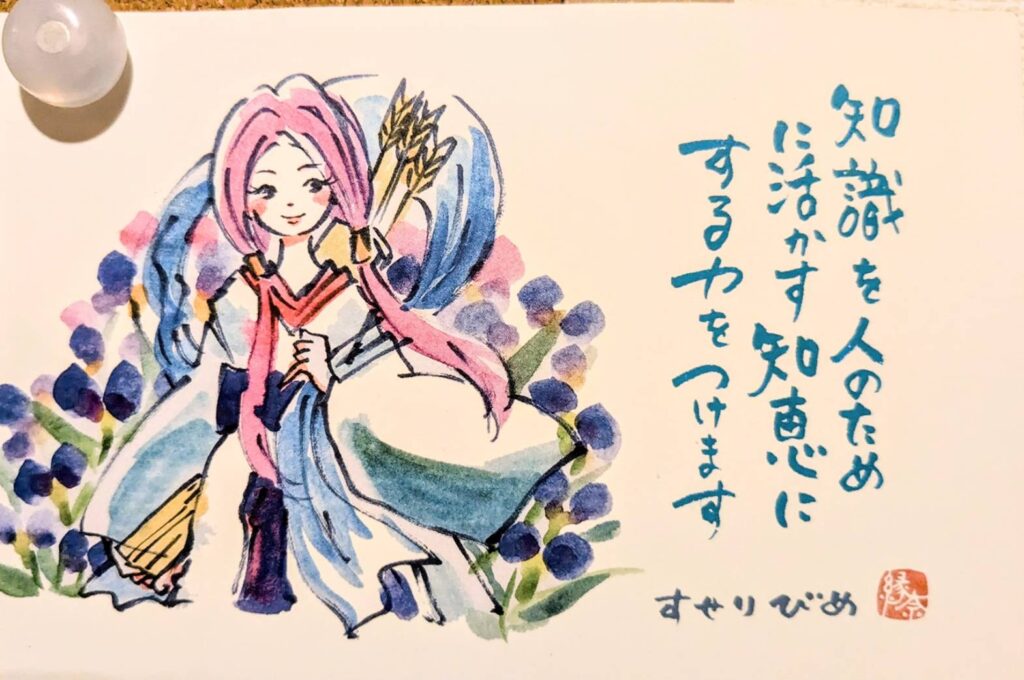 知識を人のため
に活かす知恵に
する力をつけます
すせりびめ
縁奈